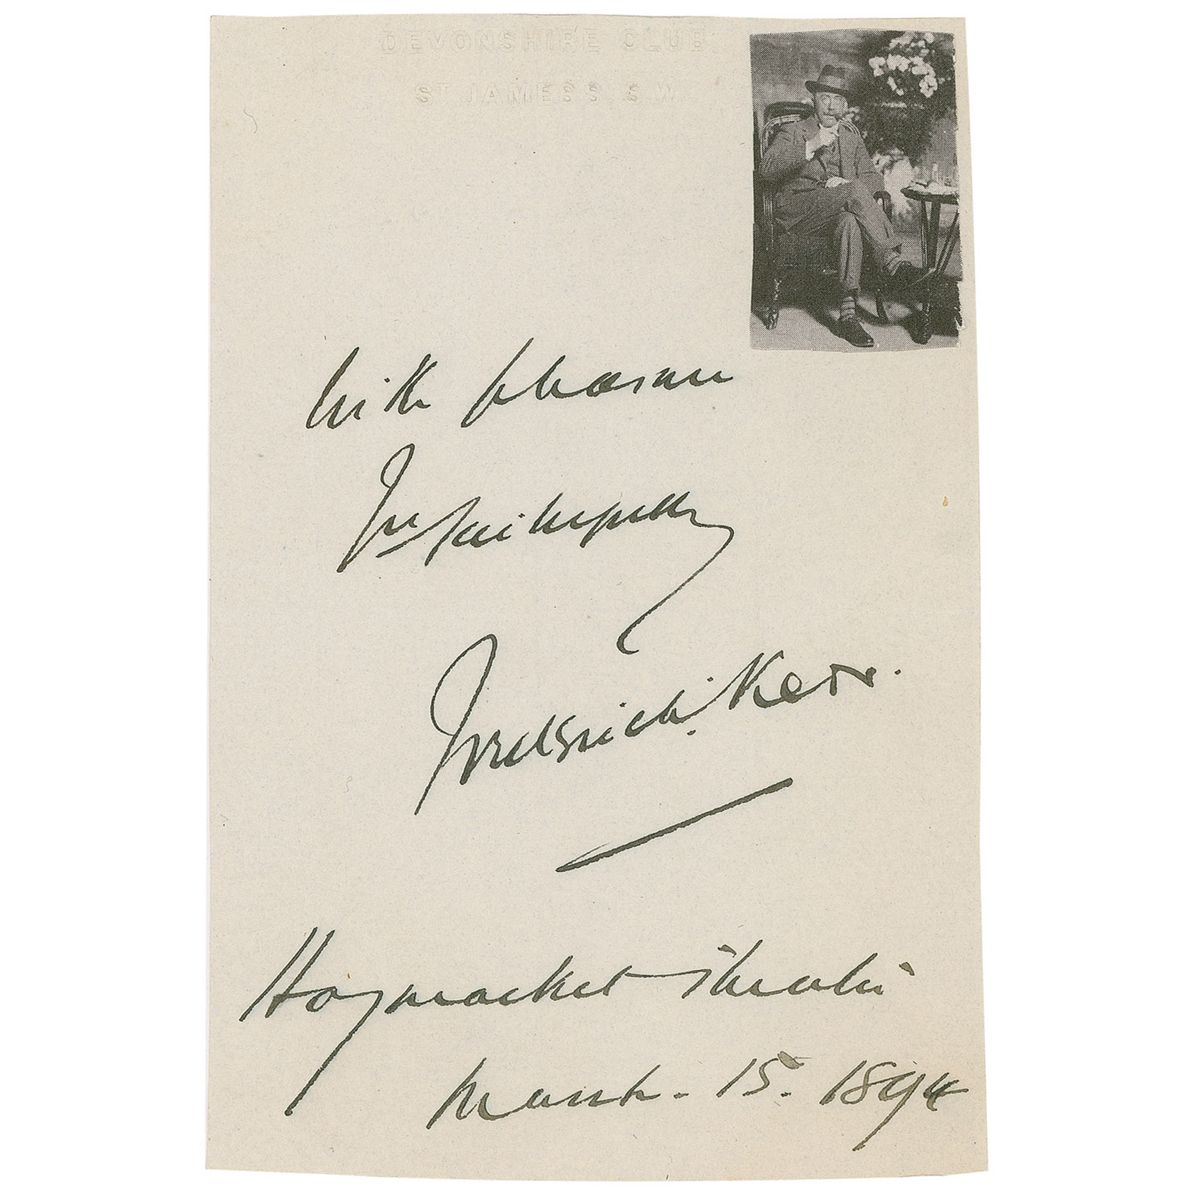 DEVONSHIRE CLUB
ST JAMES'S. S.W.
With pleasure
Yrs faithfully
Frederick Kerr.
Haymarket Theatre
March. 15. 1894